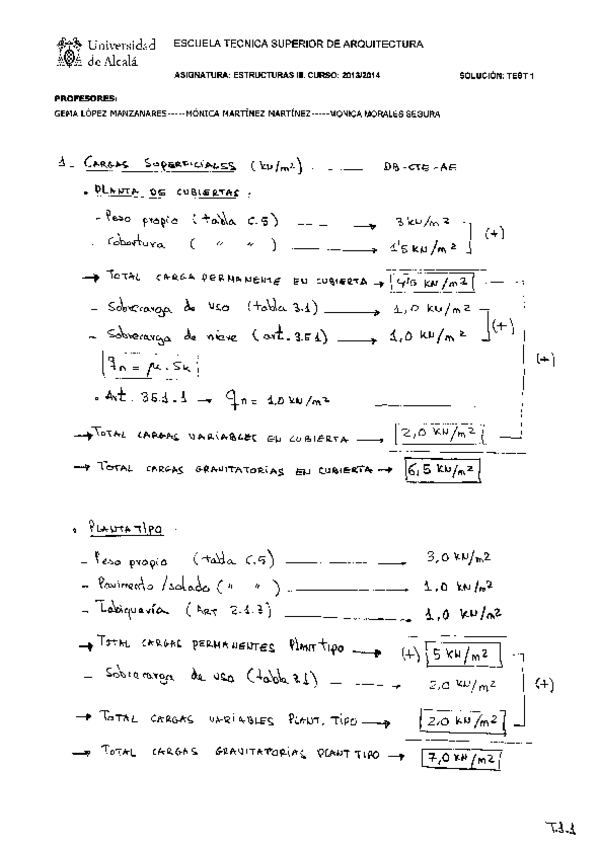 Universidad
de Alcalá
ESCUELA TECNICA SUPERIOR DE ARQUITECTURA
ASIGNATURA: ESTRUCTURAS III. CURSO: 2013/2014
SOLUCIÓN: TEST 1
PROFESORES:
GEMA LÓPEZ MANZANARES-----MÓNICA MARTÍNEZ MARTÍNEZ-----MONICA MORALES SEGURA
1- CARGAS SUPERFICIALES (kN/m²) . - --- DB-CTE-AE
• PLANTA DE CUBIERTAS:
- Peso propio (tabla C.5) --- → 3 kN/m²
- Cobertura ( " " ) ——— → 1'5 kN/m² (+)
→ TOTAL CARGA PERMANENTE EN CUBIERTA → 4'5 kN/m²
- Sobrecarga de uso (tabla 3.1) ——→ 1,0 kN/m²
- Sobrecarga de nieve (art. 3.5.1) ——→ 1,0 kN/m² (+)
qn = µ . Sk
(+)
• Art. 3.5.1.1 → qn = 1,0 kN/m²
→ TOTAL CARGAS VARIABLES EN CUBIERTA → 2,0 KN/m²
→ TOTAL CARGAS GRAVITATORIAS EN CUBIERTA → 6,5 KN/m²
• PLANTA TIPO
- Peso propio (tabla C.5) ——— 3,0 kN/m²
- Pavimento/solado ( " " ) ——— 1,0 kN/m²
- Tabiquería (ART 2.1.3) ——— 1,0 kN/m²
→ TOTAL CARGAS PERMANENTES PLANT TIPO → (+) 5 KN/m²
- Sobrecarga de uso (tabla 3.1) — → 2,0 kN/m² (+)
→ TOTAL CARGAS VARIABLES PLANT. TIPO → 2,0 KN/m²
→ TOTAL CARGAS GRAVITATORIAS PLANT TIPO → 7,0 KN/m²
T.1.1